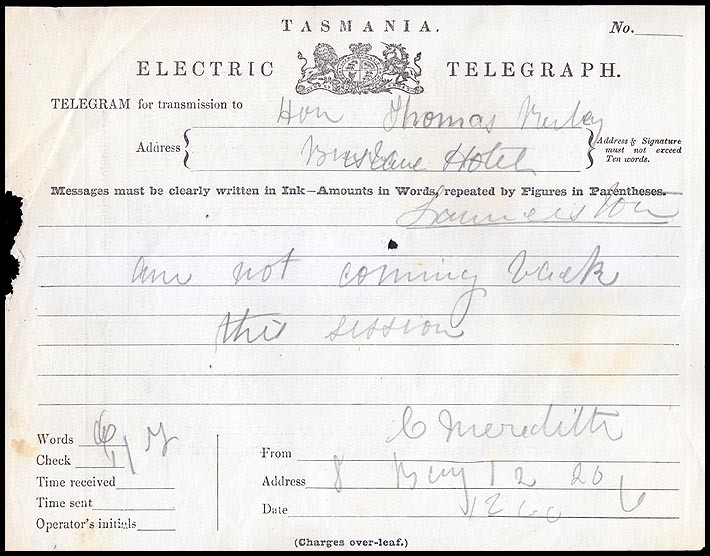 TASMANIA. No.
ELECTRIC TELEGRAPH.
TELEGRAM for transmission to Hon Thomas
Address Brisbane Hotel
Address & Signature must not exceed Ten words.
Messages must be clearly written in Ink—Amounts in Words, repeated by Figures in Parentheses.
Launceston
am not coming back
this session
Words
Check
Time received
Time sent
Operator's initials
C Meredith
From
Address 8
Date
(Charges over-leaf.)